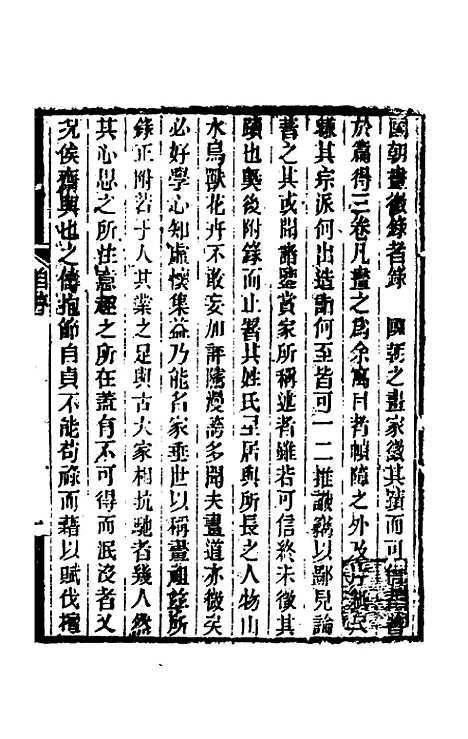 國朝畫徵錄者錄 國朝之畫家徵其蹟而可
於篇得三卷凡畫之爲余寓目者幀障之外及片紙尺
縑其宗派何出造詣何至皆可一二推識竊以鄙見論
著之其或聞諸鑒賞家所稱述者雖若可信終未徵其
蹟也槩後附錄而止署其姓氏里居與所長之人物山
水鳥獸花卉不敢妄加評隲漫誇多聞夫畫道亦微矣
必好學心知虛懷集益乃能名家垂世以稱畫祖茲所
錄正附若干人其業之足與古大家相抗馳者幾人然
其心思之所注意趣之所在蓋有不可得而泯沒者又
况侯齋輿也之儔抱節自貞不能苟祿而藉以賦伐檀
自序
一